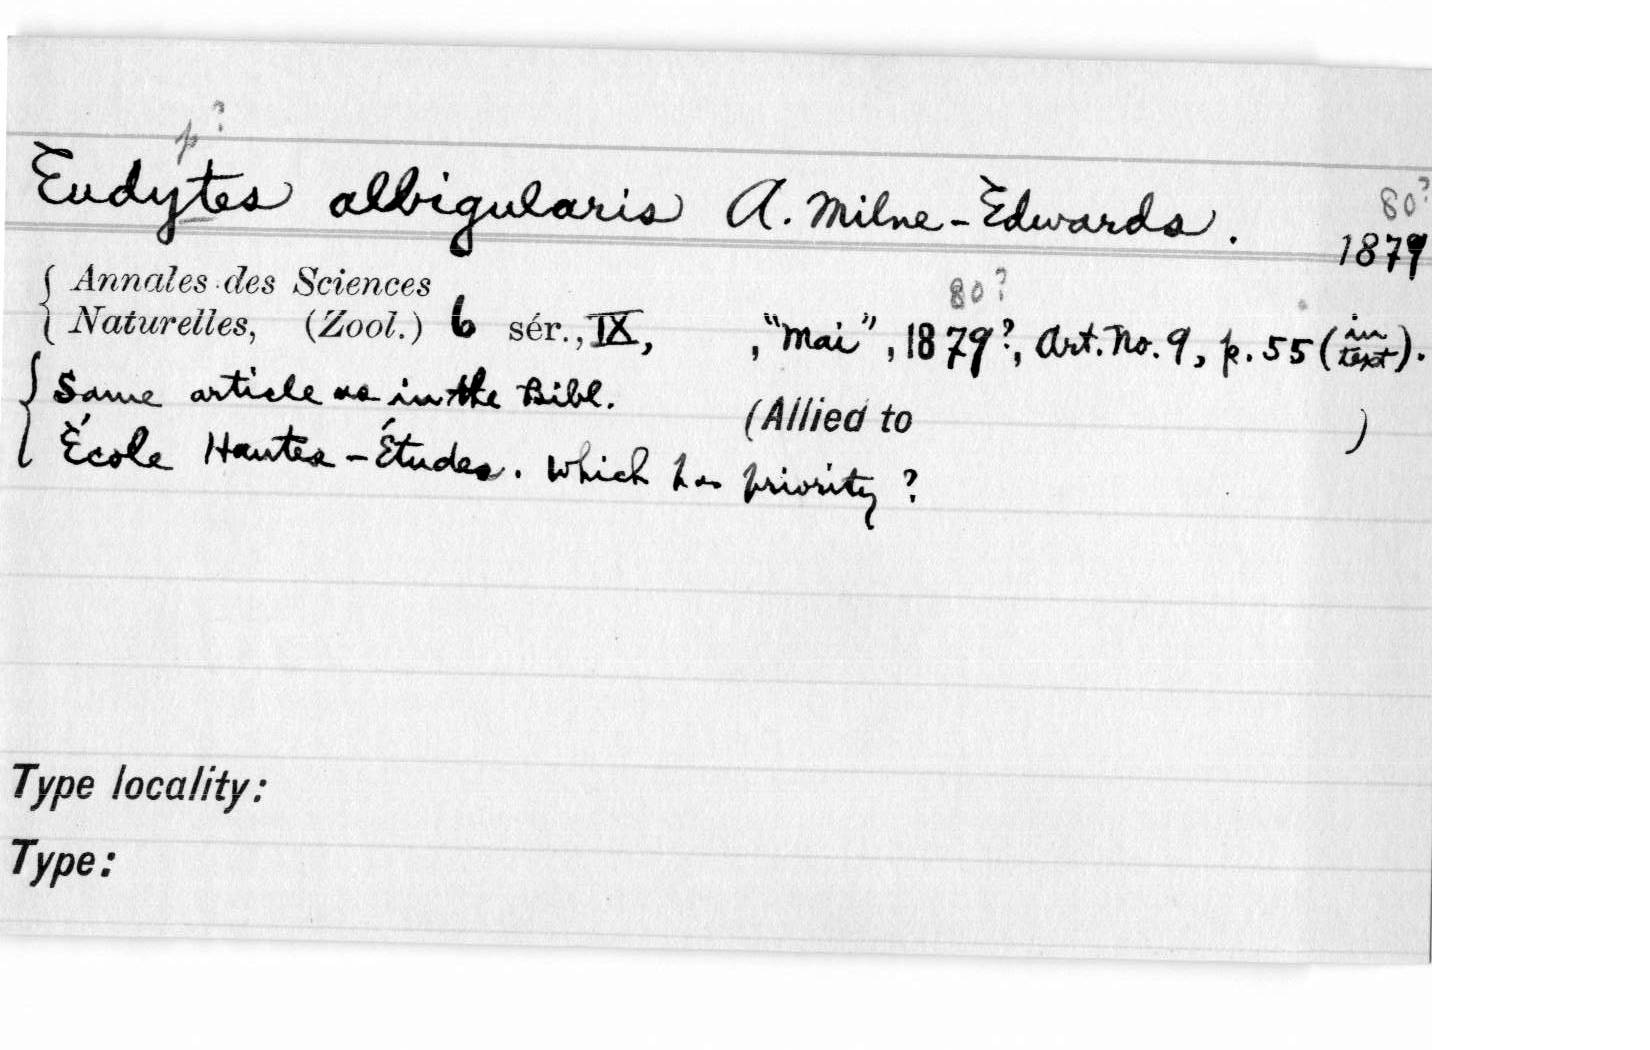 p?
Eudytes albigularis A. Milne-Edwards.
80?
1879
Annales des Sciences
Naturelles, (Zool.) 6 sér., IX, , "Mai", 1879?, Art. No. 9, p. 55 (in text).
80?
Same article as in the Bibl.
École Hautes-Études. Which has priority?
(Allied to )
Type locality:
Type: